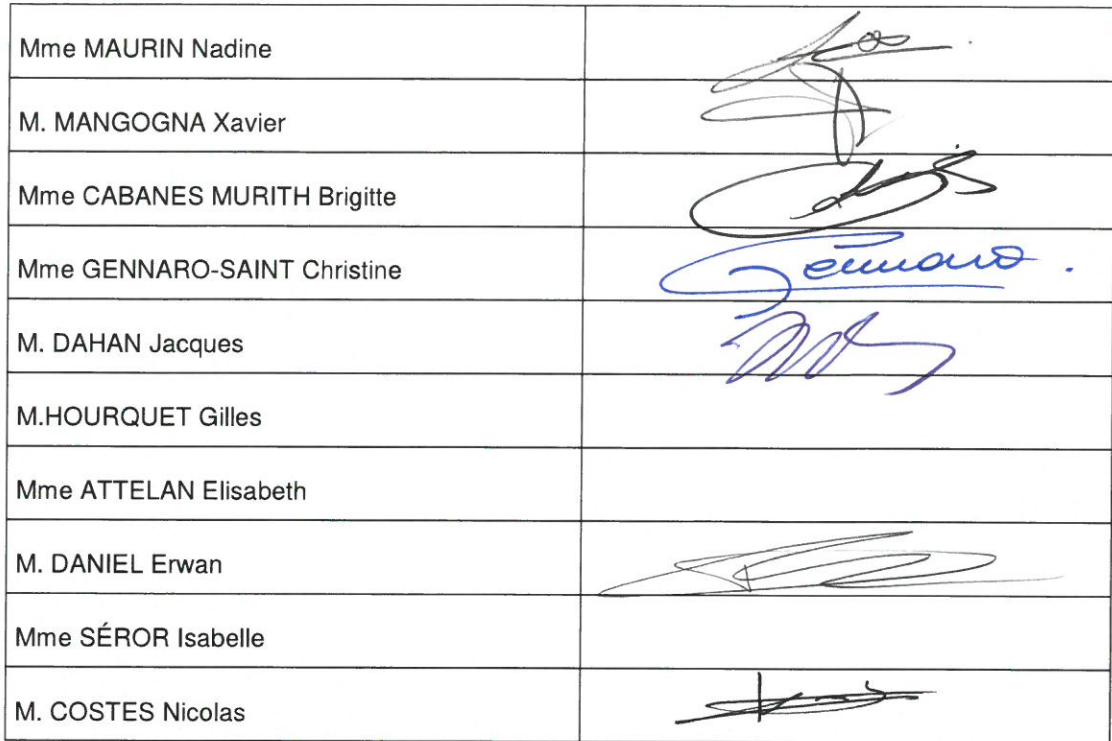 Mme MAURIN Nadine
M. MANGOGNA Xavier
Mme CABANES MURITH Brigitte
Mme GENNARO-SAINT Christine
Gennaro.
M. DAHAN Jacques
M.HOURQUET Gilles
Mme ATTELAN Elisabeth
M. DANIEL Erwan
Mme SÉROR Isabelle
M. COSTES Nicolas